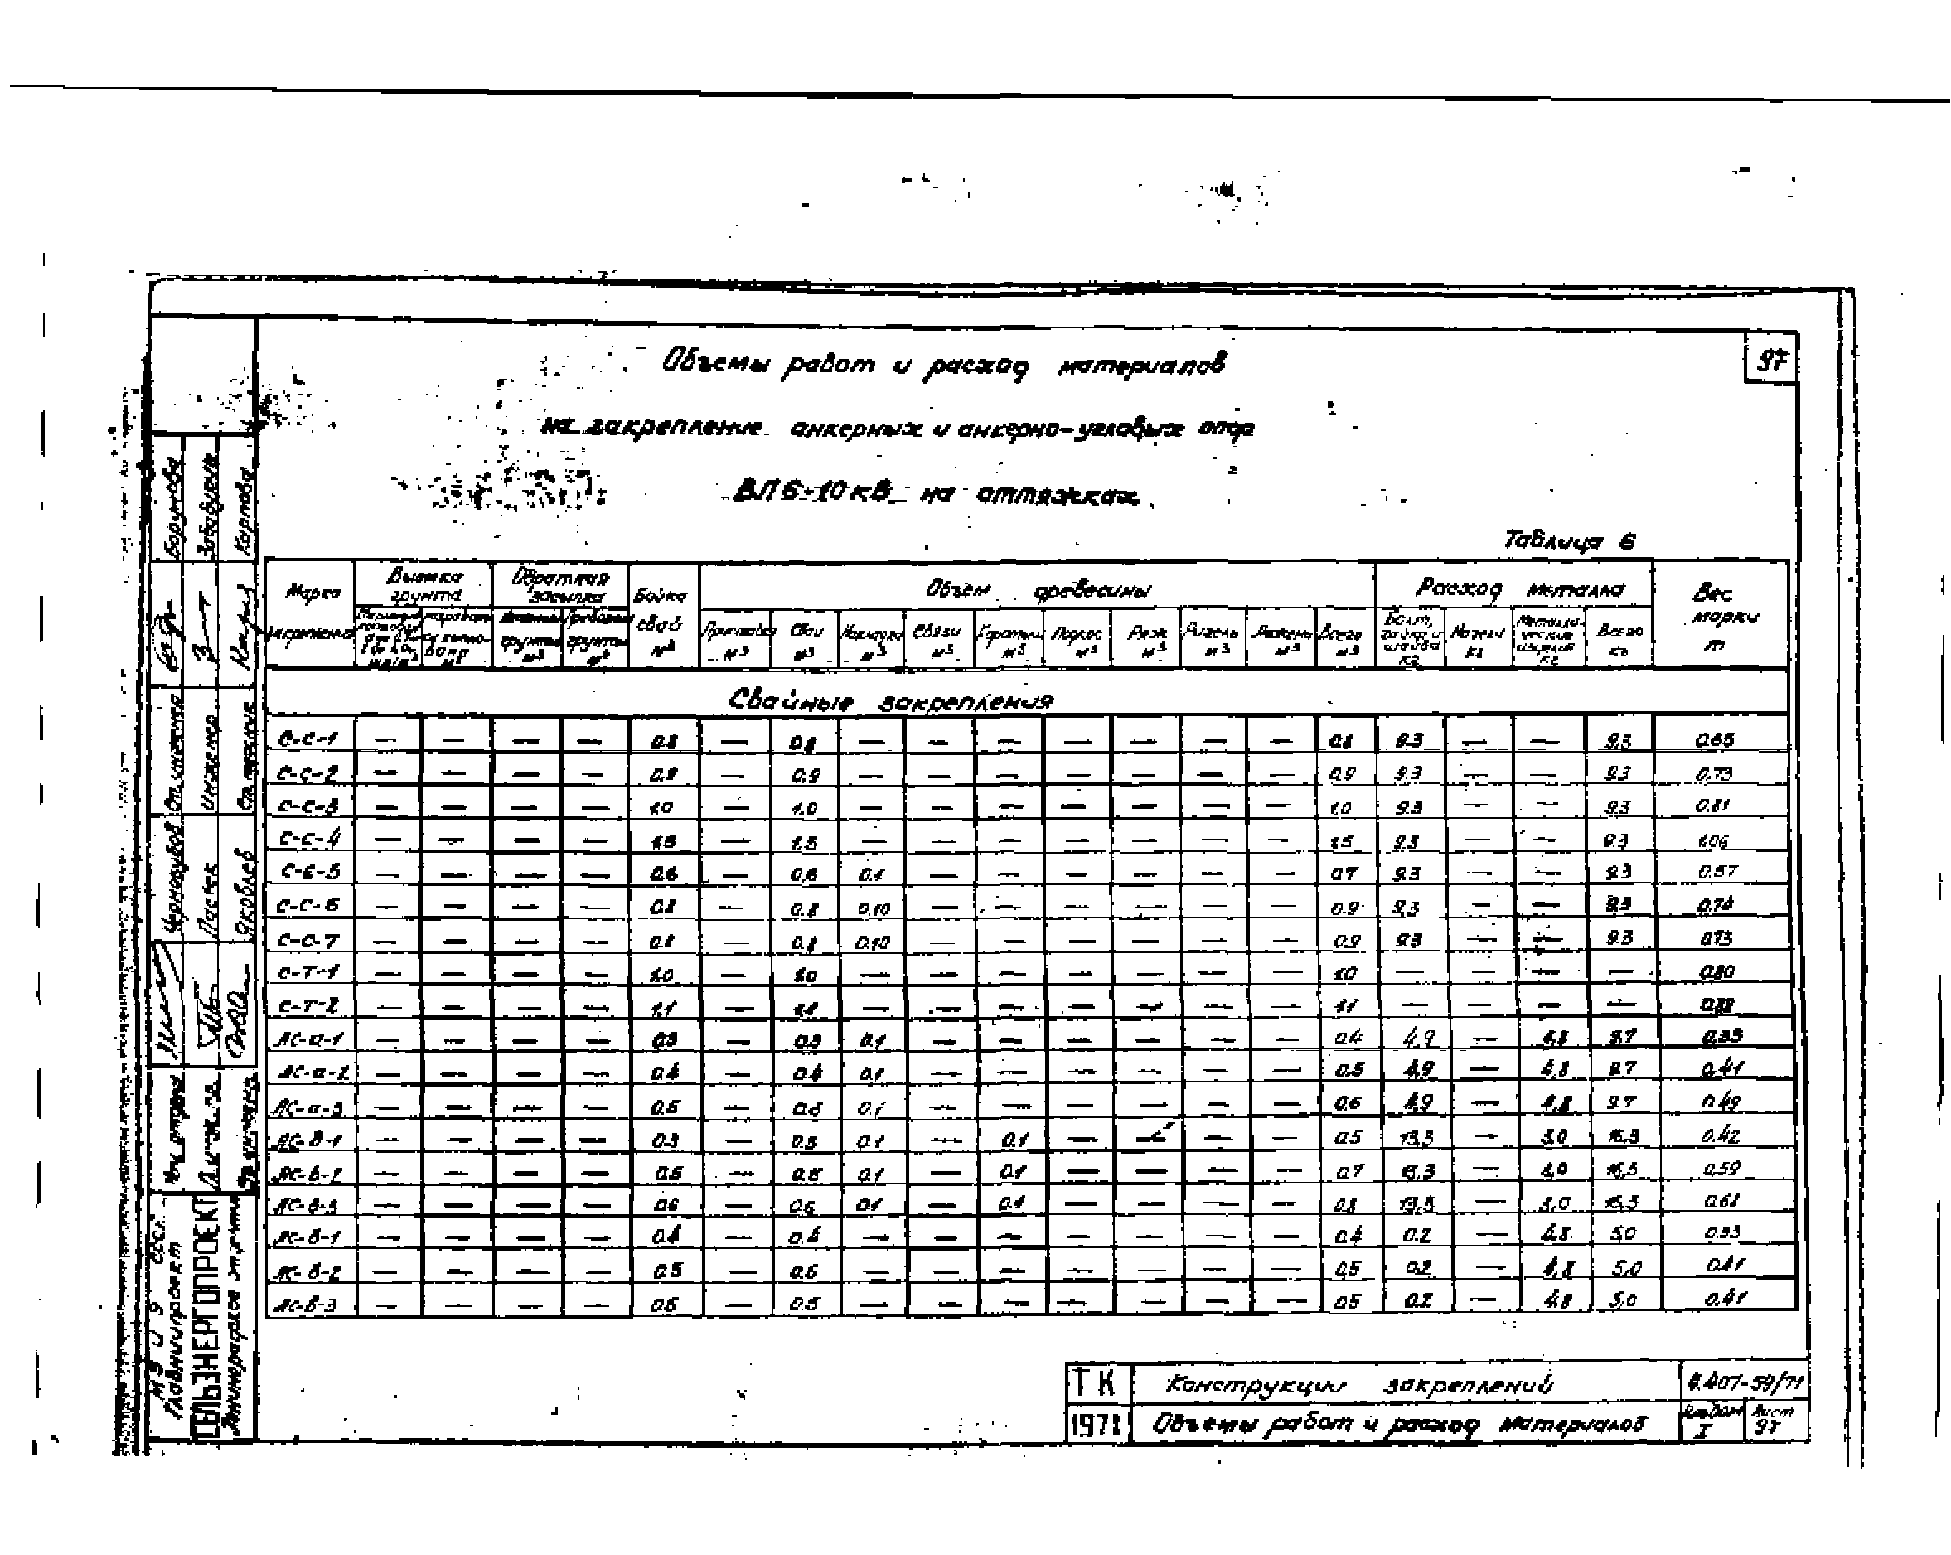 97
Объемы работ и расход материалов
на закрепление анкерных и анкерно-угловых опор
ВЛ 6-10 кВ на оттяжках
Таблица 6
Марка Выемка грунта Обратная засыпка Бойка свай м³ Объем древесины Расход металла Вес марки т
грунта м³ грунта м³ Приставка м³ Сваи м³ м³ Связи м³ м³ Подкос м³ м³ Ригель м³ м³ Всего м³ Болт, гайка и шайба кг кг Металлические изделия кг Всего кг
Свайные закрепления
С-С-1 — — — — 0.8 — 0.8 — — — — — — — 0.8 9.3 — — 9.3 0.65
С-С-2 — — — — 0.9 — 0.9 — — — — — — — 0.9 9.3 — — 9.3 0.73
С-С-3 — — — — 1.0 — 1.0 — — — — — — — 1.0 9.3 — — 9.3 0.81
С-С-4 — — — — 1.3 — 1.3 — — — — — — — 9.3 — — 9.3 1.06
С-С-5 — — — — 0.6 — 0.6 0.1 — — — — — — 0.7 9.3 — — 9.3 0.57
С-С-6 — — — — 0.8 — 0.8 0.10 — — — — — — 0.9 9.3 — — 9.3 0.74
С-С-7 — — — — 0.8 — 0.8 0.10 — — — — — — 0.9 9.3 — — 9.3 0.73
С-Т-1 — — — — 1.0 — 1.0 — — — — — — — 1.0 — — — — 0.80
С-Т-2 — — — — 1.1 — 1.1 — — — — — — — 1.1 — — — — 0.88
АС-а-1 — — — — 0.3 — 0.3 0.1 — — — — — — 0.4 4.9 — 4.8 9.7 0.33
АС-а-2 — — — — 0.4 — 0.4 0.1 — — — — — — 0.5 4.9 — 4.8 9.7 0.41
АС-а-3 — — — — 0.5 — 0.5 0.1 — — — — — — 0.6 4.9 — 4.8 9.7 0.49
АС-б-1 — — — — 0.3 — 0.3 0.1 — 0.1 — — — — 0.5 13.3 — 3.0 16.3 0.42
АС-б-2 — — — — 0.5 — 0.5 0.1 — 0.1 — — — — 0.7 13.3 — 3.0 16.3 0.59
АС-б-3 — — — — 0.6 — 0.6 0.1 — 0.1 — — — — 0.8 13.3 — 3.0 16.3 0.68
АС-в-1 — — — — 0.4 — 0.4 — — — — — — — 0.4 0.2 — 4.8 5.0 0.33
АС-в-2 — — — — 0.5 — 0.5 — — — — — — — 0.5 0.2 — 4.8 5.0 0.41
АС-в-3 — — — — 0.5 — 0.5 — — — — — — — 0.5 0.2 — 4.8 5.0 0.41
Борунова
Забавдина
Карпова
инженер
Ст. техник
Чернодубов
Ластек
Яковлев
Нач. отдела
МЭ и Э СССР
Главниипроект
СЕЛЬЭНЕРГОПРОЕКТ
ТК Конструкции закреплений 4.407-59/71
1971 Объемы работ и расход материалов Альбом I Лист 97